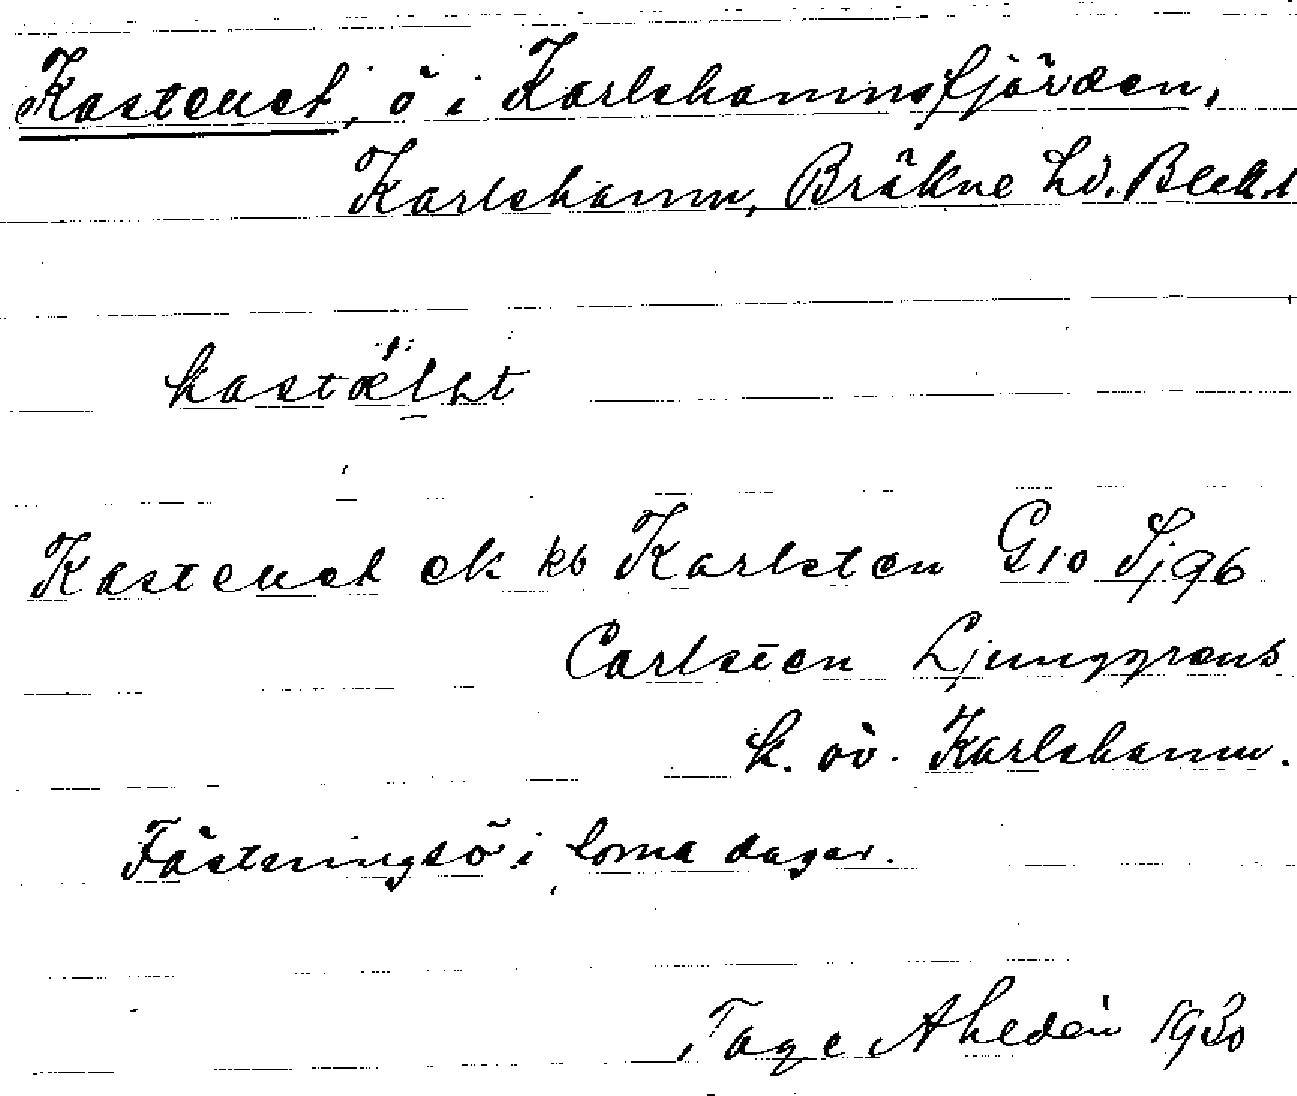 Kastellet, ö i Karlshamnsfjärden,
Karlshamn, Bräkne hd. Blek.
kastælət
Kastellet ek kb Karlsten G10 Sj96
Carlsten Ljunggrens
k. öv. Karlshamn.
Fästningsö i forna dagar.
Tage Ahldén 1930